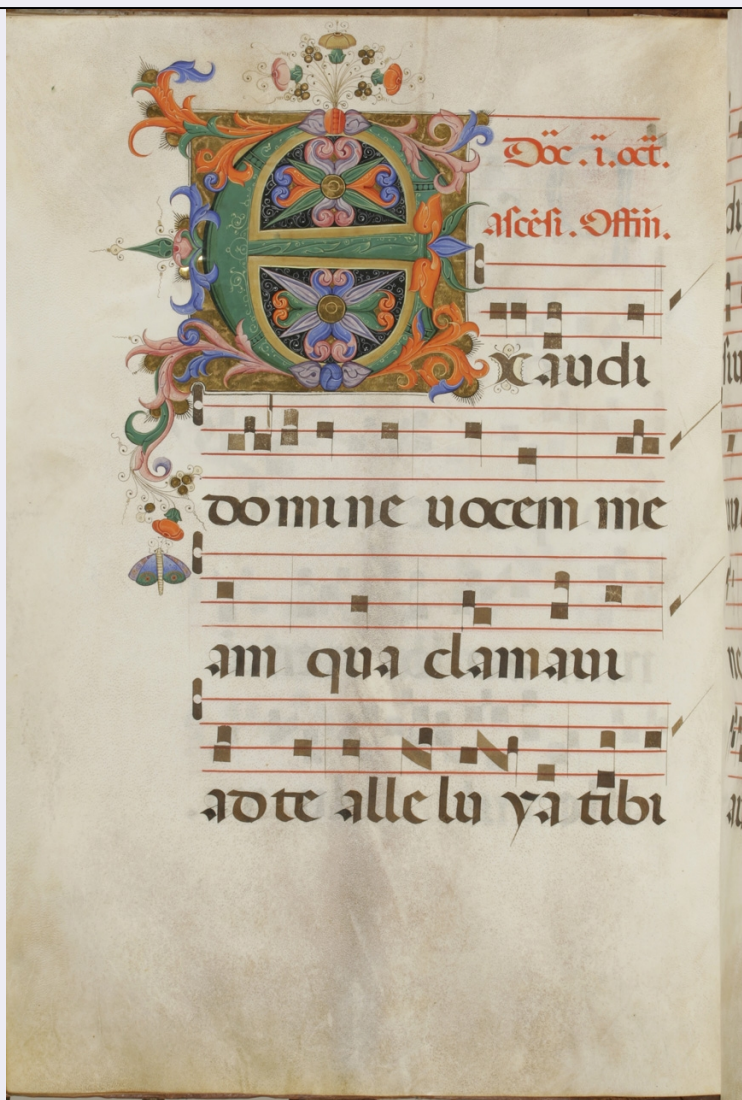 Doc̄ . i . oct̄.
ascēsi . Offin̄.
Exaudi
domine uocem me
am qua clamaui
ad te alle lu ya tibi